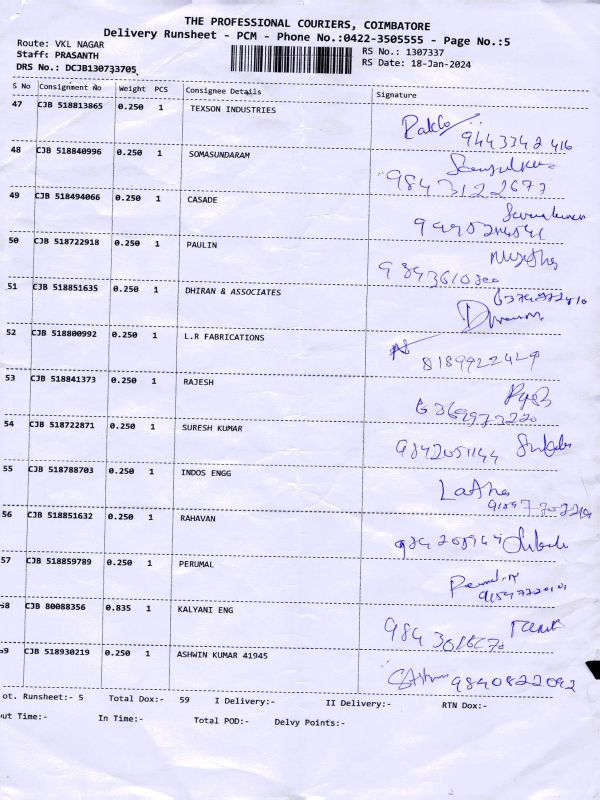 THE PROFESSIONAL COURIERS, COIMBATORE
Delivery Runsheet - PCM - Phone No.:0422-3505555 - Page No.:5
Route: VKL NAGAR
RS No.: 1307337
Staff: PRASANTH
RS Date: 18-Jan-2024
DRS No.: DCJB130733705
S No Consignment No Weight PCS Consignee Details Signature
47 CJB 518813865 0.250 1 TEXSON INDUSTRIES
9443342416
48 CJB 518840996 0.250 1 SOMASUNDARAM
9843122677
49 CJB 518494066 0.250 1 CASADE
50 CJB 518722918 0.250 1 PAULIN
51 CJB 518851635 0.250 1 DHIRAN & ASSOCIATES
52 CJB 518800992 0.250 1 L.R FABRICATIONS
8189922429
53 CJB 518841373 0.250 1 RAJESH
54 CJB 518722871 0.250 1 SURESH KUMAR
9842051144
55 CJB 518788703 0.250 1 INDOS ENGG
56 CJB 518851632 0.250 1 RAHAVAN
57 CJB 518859789 0.250 1 PERUMAL
58 CJB 80088356 0.835 1 KALYANI ENG
59 CJB 518930219 0.250 1 ASHWIN KUMAR 41945
9840822092
ot. Runsheet:- 5 Total Dox:- 59 I Delivery:- II Delivery:- RTN Dox:-
ut Time:- In Time:- Total POD:- Delvy Points:-